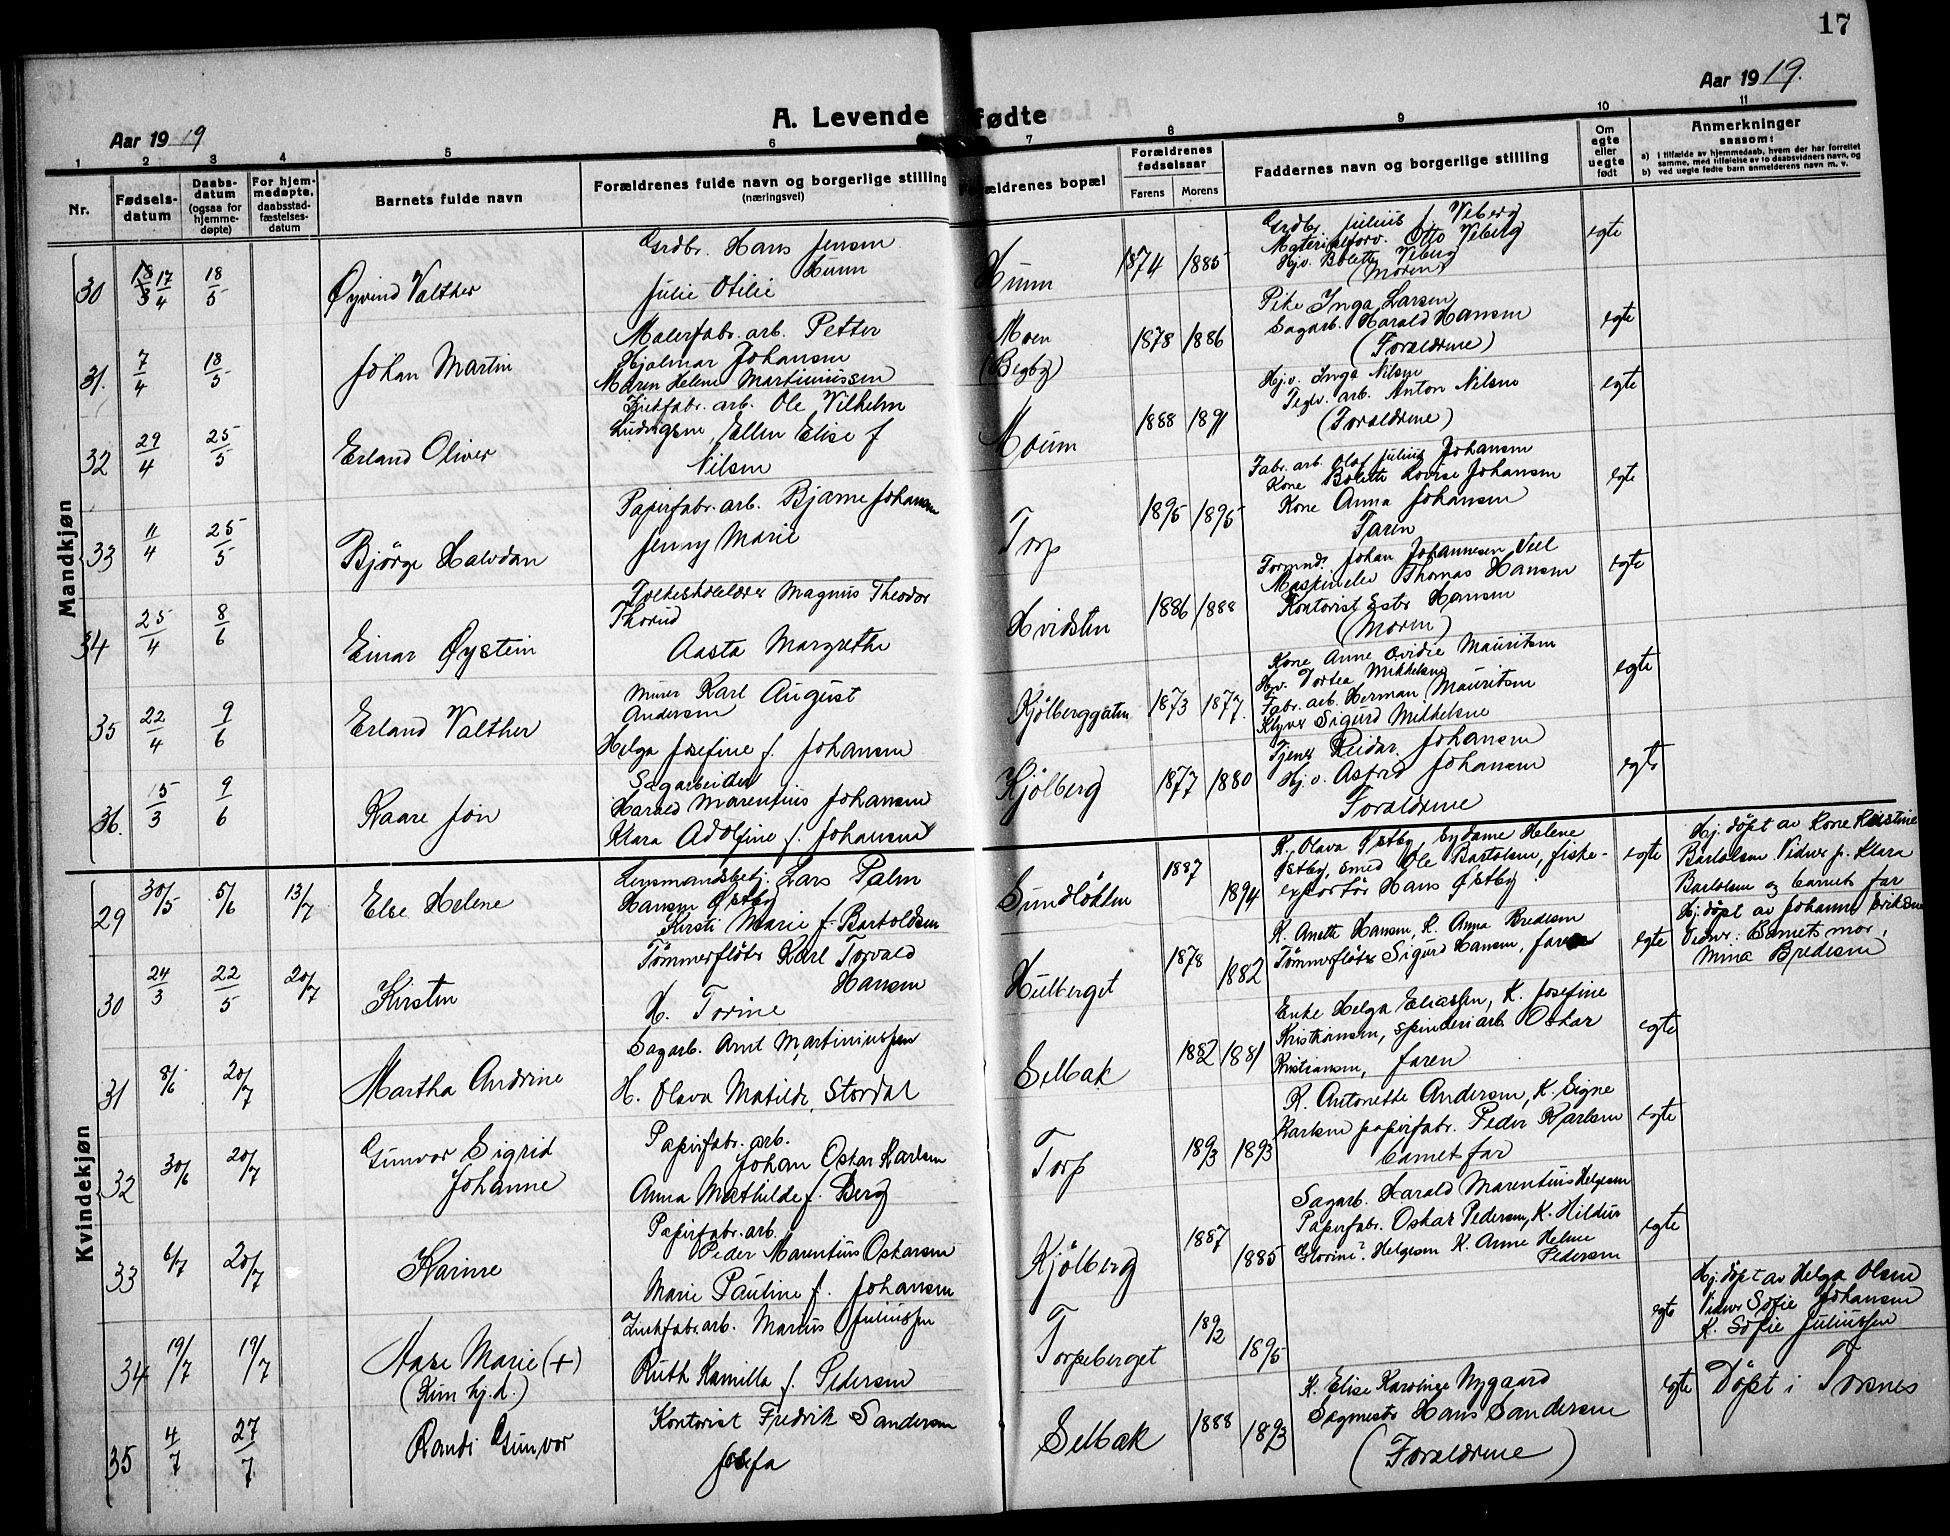 17
Aar 1919
Aar 1919.
A. Levende fødte
1 2 3 4 5 6 7 8 9 10 11
Nr.
Fødsels-
datum
Daabs-
datum
(ogsaa for
hjemme-
døpte)
For hjem-
medøpte,
daabsstad-
fæstelses-
datum
Barnets fulde navn
Forældrenes fulde navn og borgerlige stilling
(næringsvei)
ældrenes bopæl
Forældrenes
fødselsaar
Farens Morens
Faddernes navn og borgerlige stilling
Om
egte
eller
uegte
født
Anmerkninger
saasom:
a) i tilfælde av hjemmedaab, hvem der har forrettet
samme, med tilføielse av to daabsvidners navn, og
b) ved uegte fødte barn anmelderens navn m. v.
Mandkjøn
30 17/4 18/5 Øyvind Valther
Grdbr. Hans Jensen
Hunn
Julie Otilie
Hunn 1874 1885
Grdbr. Julius J Viberg
Materialforv. Otto Viberg
Hjv. Bolette Viberg
(Moren)
egte
31. 7/4 18/5 Johan Martin
Malerfabr. arb. Petter
Hjalmar Johansen
Maren Helene Martiniussen
Moen
(Begby)
1878 1886
Pike Inga Larsen
Sagarb. Harald Hansen
(Forældrene)
egte
32 29/4 25/5 Erland Oliver
Zinkfabr. arb. Ole Vilhelm
Ludvigsen, Ellen Elise f
Nilsen
Moum 1888 1891
Hjv. Inga Nilsen
Teglv. arb. Anton Nilsen
(Forældrene)
egte
33 11/4 25/5 Bjørge Halvdan
Papirfabr. arb. Bjarne Johansen
Jenny Marie
Torp 1895 1895
Fabr. arb. Olaf Julius Johansen
Kone Bolette Lovise Johansen
Kone Anna Johansen
Faren
egte
34 25/4 8/6 Einar Øystein
Folkeskolelærer Magnus Theodor
Thorud
Aasta Margrethe
Hvidsten 1886 1888
Formnd. Johan Johannesen Vell
Maskinelev Thomas Hansen
Kontorist Ester Hansen
(Moren)
egte
35 22/4 9/6 Erland Valther
Murer Karl August
Andersen
Helga Josefine f. Johansen
Kjølberggaten 1873 1877.
Kone Anne Ovidie Mauritsen
Hjv. Dortea Mikkelsen
Fabr. arb. Herman Mauritsen
Sigurd Mikkelsen
egte
36. 15/3 9/6 Kaare Jon
Sagarbeider
Harald Marentius Johansen
Klara Adolfine f. Johansen
Kjølberg 1877 1880
Tjener Reidar Johansen
Hj.v. Astrid Johansen
Forældrene
egte
Kvindekjøn
29 30/5 5/6 13/7 Else Helene
Lensmandsbetj. Lars Palm
Hansen Østby
Kirsti Marie f. Bartoldsen
Sundløkken 1887 1894
K. Olava Østby, Sydame Helene
Østby, smed Ole Bartolsen, fiske-
exportør Hans Østby
egte
Hj. døpt av Kone Kristine
Bartolsen Vidner p. Klara
Bartolsen og barnets far
30 24/3 22/5 20/7 Kirsten
Tømmerfløter Karl Torvald
Hansen
H. Torine
Hulberget 1878 1882
K. Anette Hansen, K. Anna Bredesen
Tømmerfløter Sigurd Hansen, faren
egte
Hj. døpt av Johanne Eriksen
Vidner: Barnets mor,
Mina Bredesen
31 8/6 20/7 Martha Andrine
Sagarb. Arnt Martiniussen
H. Olava Matilde, Stordal
Selbak 1882 1881
Enke Helga Eliassen, K. Josefine
Kristiansen, spinderiarb. Oskar
Kristiansen, faren
egte
32 30/6 20/7 Gunvor Sigrid
Johanne
Papirfabr. arb.
Johan Oskar Karlsen
Anna Mathilde f. Berg
Torp 1893 1893
K. Antonette Andersen, K. Signe
Karlsen papirfabr. Peder Karlsen
barnet far
egte
33 6/7 20/7 Karine
Papirfabr. arb.
Peder Marentius Oskarsen
Marie Pauline f. Johansen
Kjølberg 1887 1885
Sagarb. Harald Marentius Helgesen
Papirfabr. Oskar Pedersen, K. Hildur
Helgesen K. Anne Helene
Pedersen
egte
34 19/7 19/7 Aase Marie (+)
(Kun hj. d.)
Zinkfabr. arb. Marius Juliussen
Ruth Kamilla f. Pedersen
Torpeberget 1892 1895
egte
Hj. døpt av Helga Olsen
Vidner Sofie Johansen
K. Sofie Juliussen
35 4/7 27/7 Randi Gunvor
Kontorist Fredrik Sandersen
Josefa
Selbak 1888 1893
K. Elise Karoline Nygaard
Sagmester Hans Sandersen
(Forældrene)
egte
Døpt i Torsnes